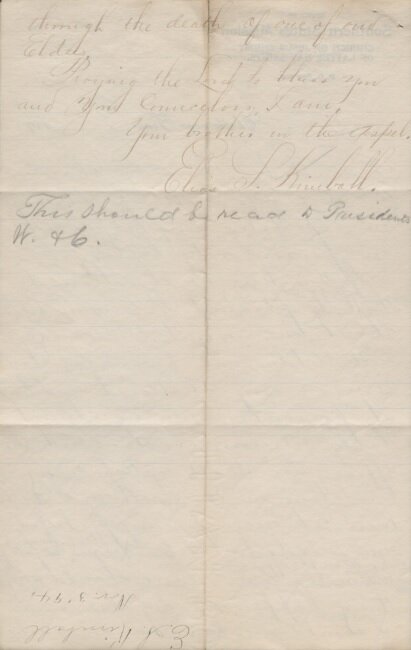 through the death of one of our
Elders
Praying the Lord to bless you
and your Councelors, I am,
Your brother in the Gospel.
Elias S. Kimball.
This should be read to Presidents
W. & C.
E. S. Kimball
Nov. 3 '94